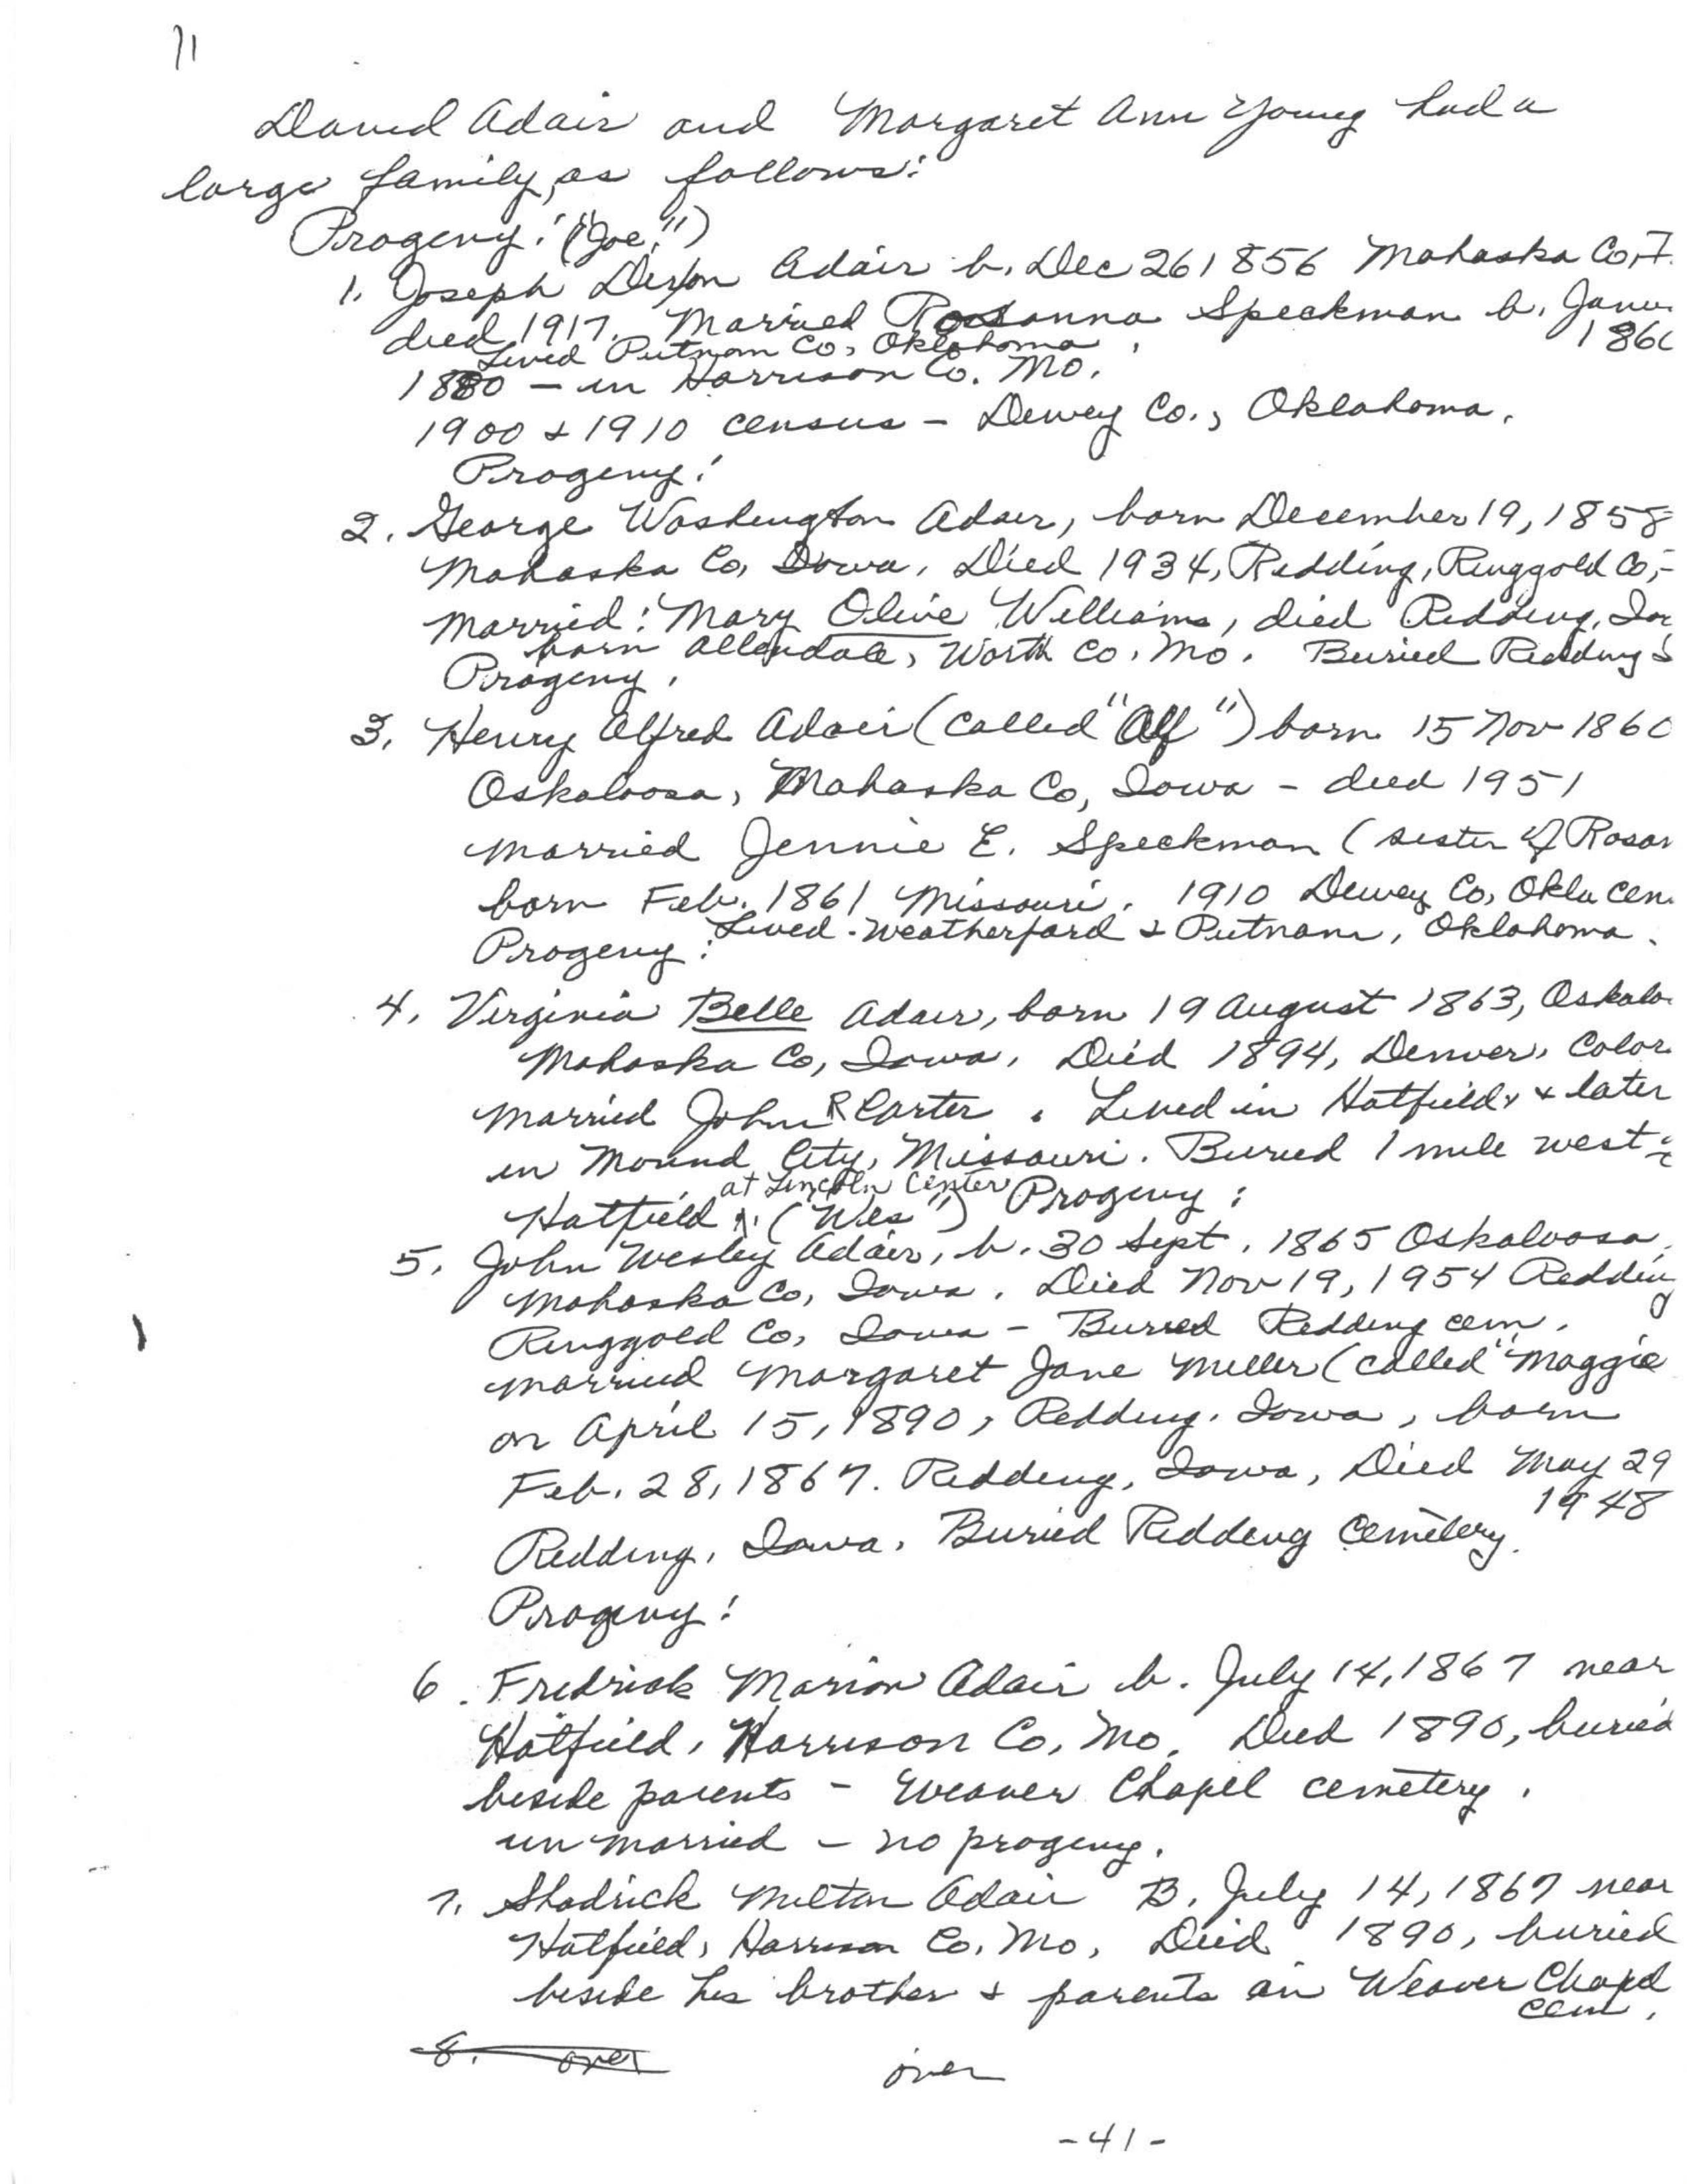 11
David Adair and Margaret Ann Young had a
large family, as follows:
Progeny: ("Joe")
1. Joseph Dixon Adair b. Dec 26 1856 Mahaska Co, I
died 1917. Married Rosanna Speckman b. Janu
1860
Lived Putnam Co, Oklahoma
1880 - in Harrison Co. Mo.
1900 & 1910 census - Dewey Co., Oklahoma.
Progeny:
2. George Washington Adair, born December 19, 1858
Mahaska Co, Iowa. Died 1934, Redding, Ringgold Co,-
Married: Mary Olive Williams, died Redding, Iow
born Allendale, Worth Co. Mo. Buried Redding
Progeny.
3. Henry Alfred Adair (called "Alf") born 15 Nov 1860
Oskaloosa, Mahaska Co, Iowa - died 1951
married Jennie E. Speckman (sister of Rosan
born Feb. 1861 Missouri. 1910 Dewey Co, Okla cen.
Lived - Weatherford & Putnam, Oklahoma.
Progeny:
4. Virginia Belle Adair, born 19 August 1863, Oskalo
Mahaska Co, Iowa. Died 1894, Denver, Color.
married John R Carter. Lived in Hatfield, & later
in Mound City, Missouri. Buried 1 mile west
Hatfield at Lincoln Center Progeny:
("Wes")
5. John Wesley Adair, b. 30 Sept. 1865 Oskaloosa,
Mahaska Co, Iowa. Died Nov 19, 1954 Redding
Ringgold Co, Iowa - Buried Redding cem.
married Margaret Jane Miller (called "Maggie
on April 15, 1890, Redding, Iowa, born
Feb. 28, 1867. Redding, Iowa, Died May 29
1948
Redding, Iowa. Buried Redding Cemetery.
Progeny:
6. Fredrick Marion Adair b. July 14, 1867 near
Hatfield, Harrison Co, Mo. Died 1890, buried
beside parents - Weaver Chapel cemetery.
unmarried - no progeny.
7. Shadrick Milton Adair B. July 14, 1867 near
Hatfield, Harrison Co. Mo. Died 1890, buried
beside his brother & parents in Weaver Chapel
cem.
8. over
over
-41-